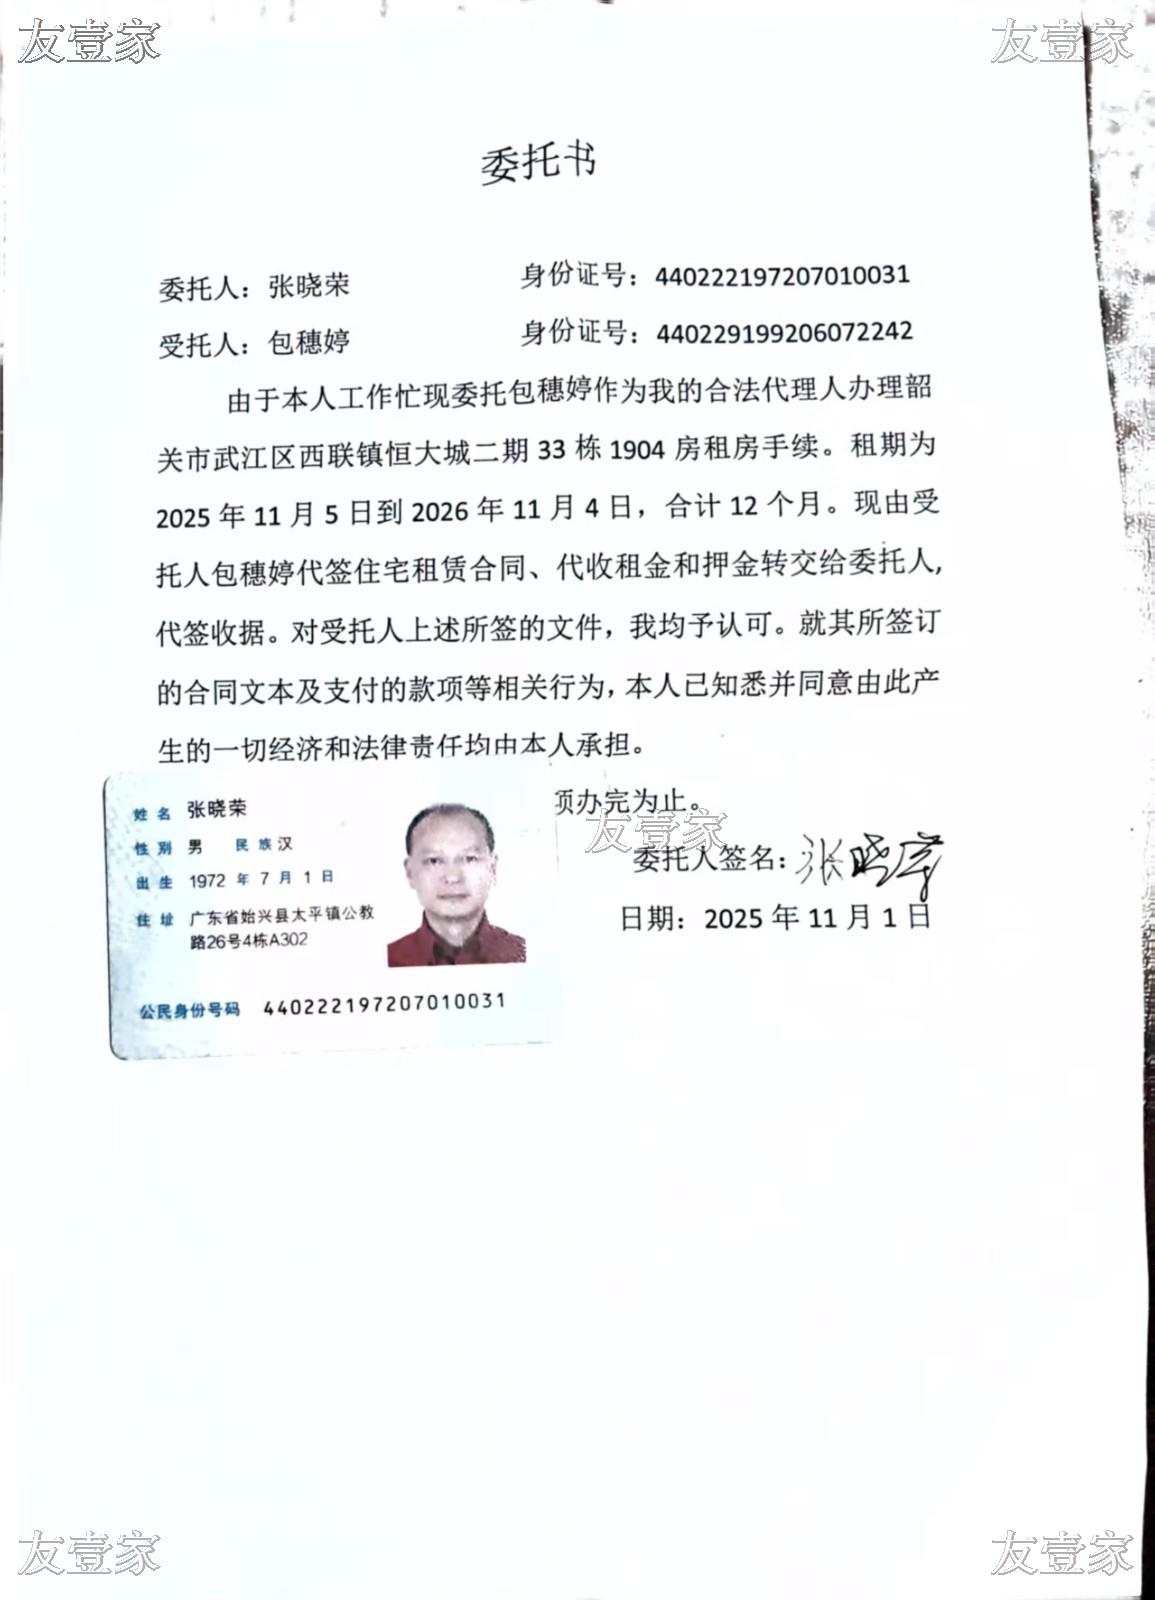 友壹家 友壹家
委托书
委托人：张晓荣 身份证号：440222197207010031
受托人：包穗婷 身份证号：440229199206072242
由于本人工作忙现委托包穗婷作为我的合法代理人办理韶
关市武江区西联镇恒大城二期 33 栋 1904 房租房手续。租期为
2025 年 11 月 5 日到 2026 年 11 月 4 日，合计 12 个月。现由受
托人包穗婷代签住宅租赁合同、代收租金和押金转交给委托人,
代签收据。对受托人上述所签的文件，我均予认可。就其所签订
的合同文本及支付的款项等相关行为，本人已知悉并同意由此产
生的一切经济和法律责任均由本人承担。
项办完为止。
友壹家
委托人签名：张晓荣
日期：2025 年 11 月 1 日
姓名 张晓荣
性别 男 民族 汉
出生 1972 年 7 月 1 日
住址 广东省始兴县太平镇公教
路26号4栋A302
公民身份号码 440222197207010031
友壹家 友壹家